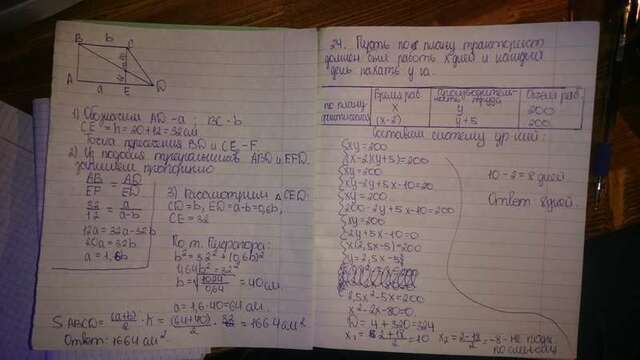 B b C
A a E D
1) Обозначим AD - a ; BC - b
CE = h = 20+12 = 32 см
Точка пересечения BD и CE - F
2) Из подобия треугольников ABD и EFD
запишем пропорцию
AB/EF = AD/ED
32/12 = a/(a-b)
12a = 32a - 32b
20a = 32b
a = 1,6b
3) Рассмотрим △ CED:
CD = b, ED = a-b = 0,6b,
CE = 32
По т. Пифагора:
b² = 32² + (0,6b)²
0,64b² = 32²
b = √(1024/0,64) = 40 см
a = 1,6·40 = 64 см.
S ABCD = (a+b)/2 · h = (64+40)/2 · 32 = 1664 см²
Ответ: 1664 см²
24. Пусть по плану тракторист
должен был работать x дней и каждый
день пахать y га.
Время раб. Производительность труда Объём раб.
по плану x y 200
фактически (x-2) y+5 200
Составим систему ур-ний:
{xy = 200
{(x-2)(y+5) = 200
{xy = 200
{xy-2y+5x-10 = 200
{xy = 200
{200-2y+5x-10 = 200
{xy = 200
{2y+5x-10 = 0
{x(2,5x-5) = 200
{y = 2,5x-5
2,5x²-5x = 200
x²-2x-80 = 0
D = 4+320 = 324
x₁ = (2+18)/2 = 10 x₂ = (2-18)/2 = -8 - не подх.
по смыслу
10-2 = 8 дней
Ответ: 8 дней.